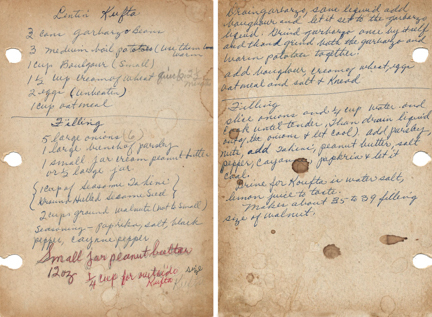 Lentin Kufta
2 cans garbanzo beans
3 medium boil potatoes (use them warm
1 cup Baulgour (small)
1/2 cup cream of wheat
2 eggs (unbeaten)
1 cup oatmeal
Filling
5 large onions (6)
1 large bunch of parsley
1 small jar cream peanut butter
or 1/2 large jar
(1 cup of Seasome Tahini)
Ground Hulled Sesame Seed
2 cups ground walnuts (not to small)
Seasoning - paprika, salt, black
pepper, Cayenne pepper
Small jar peanut butter
12 oz 1/4 cup for outside
Kufta
Drain garbanzo, save liquid add
baulgour and let it set to the garbanzo
liquid. Grind garbanzo once by itself
and than grind both the garbanzo and
warm potatoes together.
add baulgour, cream of wheat, eggs
oatmeal and salt & Knead
Filling
slice onions and 1/2 cup water and
cook until tender. Than drain liquid
out of the onions & let cool) add parsley,
nuts, add Tahini, peanut butter, salt
pepper, Cayenne, paprika & let it
cool.
for Koufta is water salt,
lemon juice to taste.
Makes about 35 to 39 filling
size of walnut.